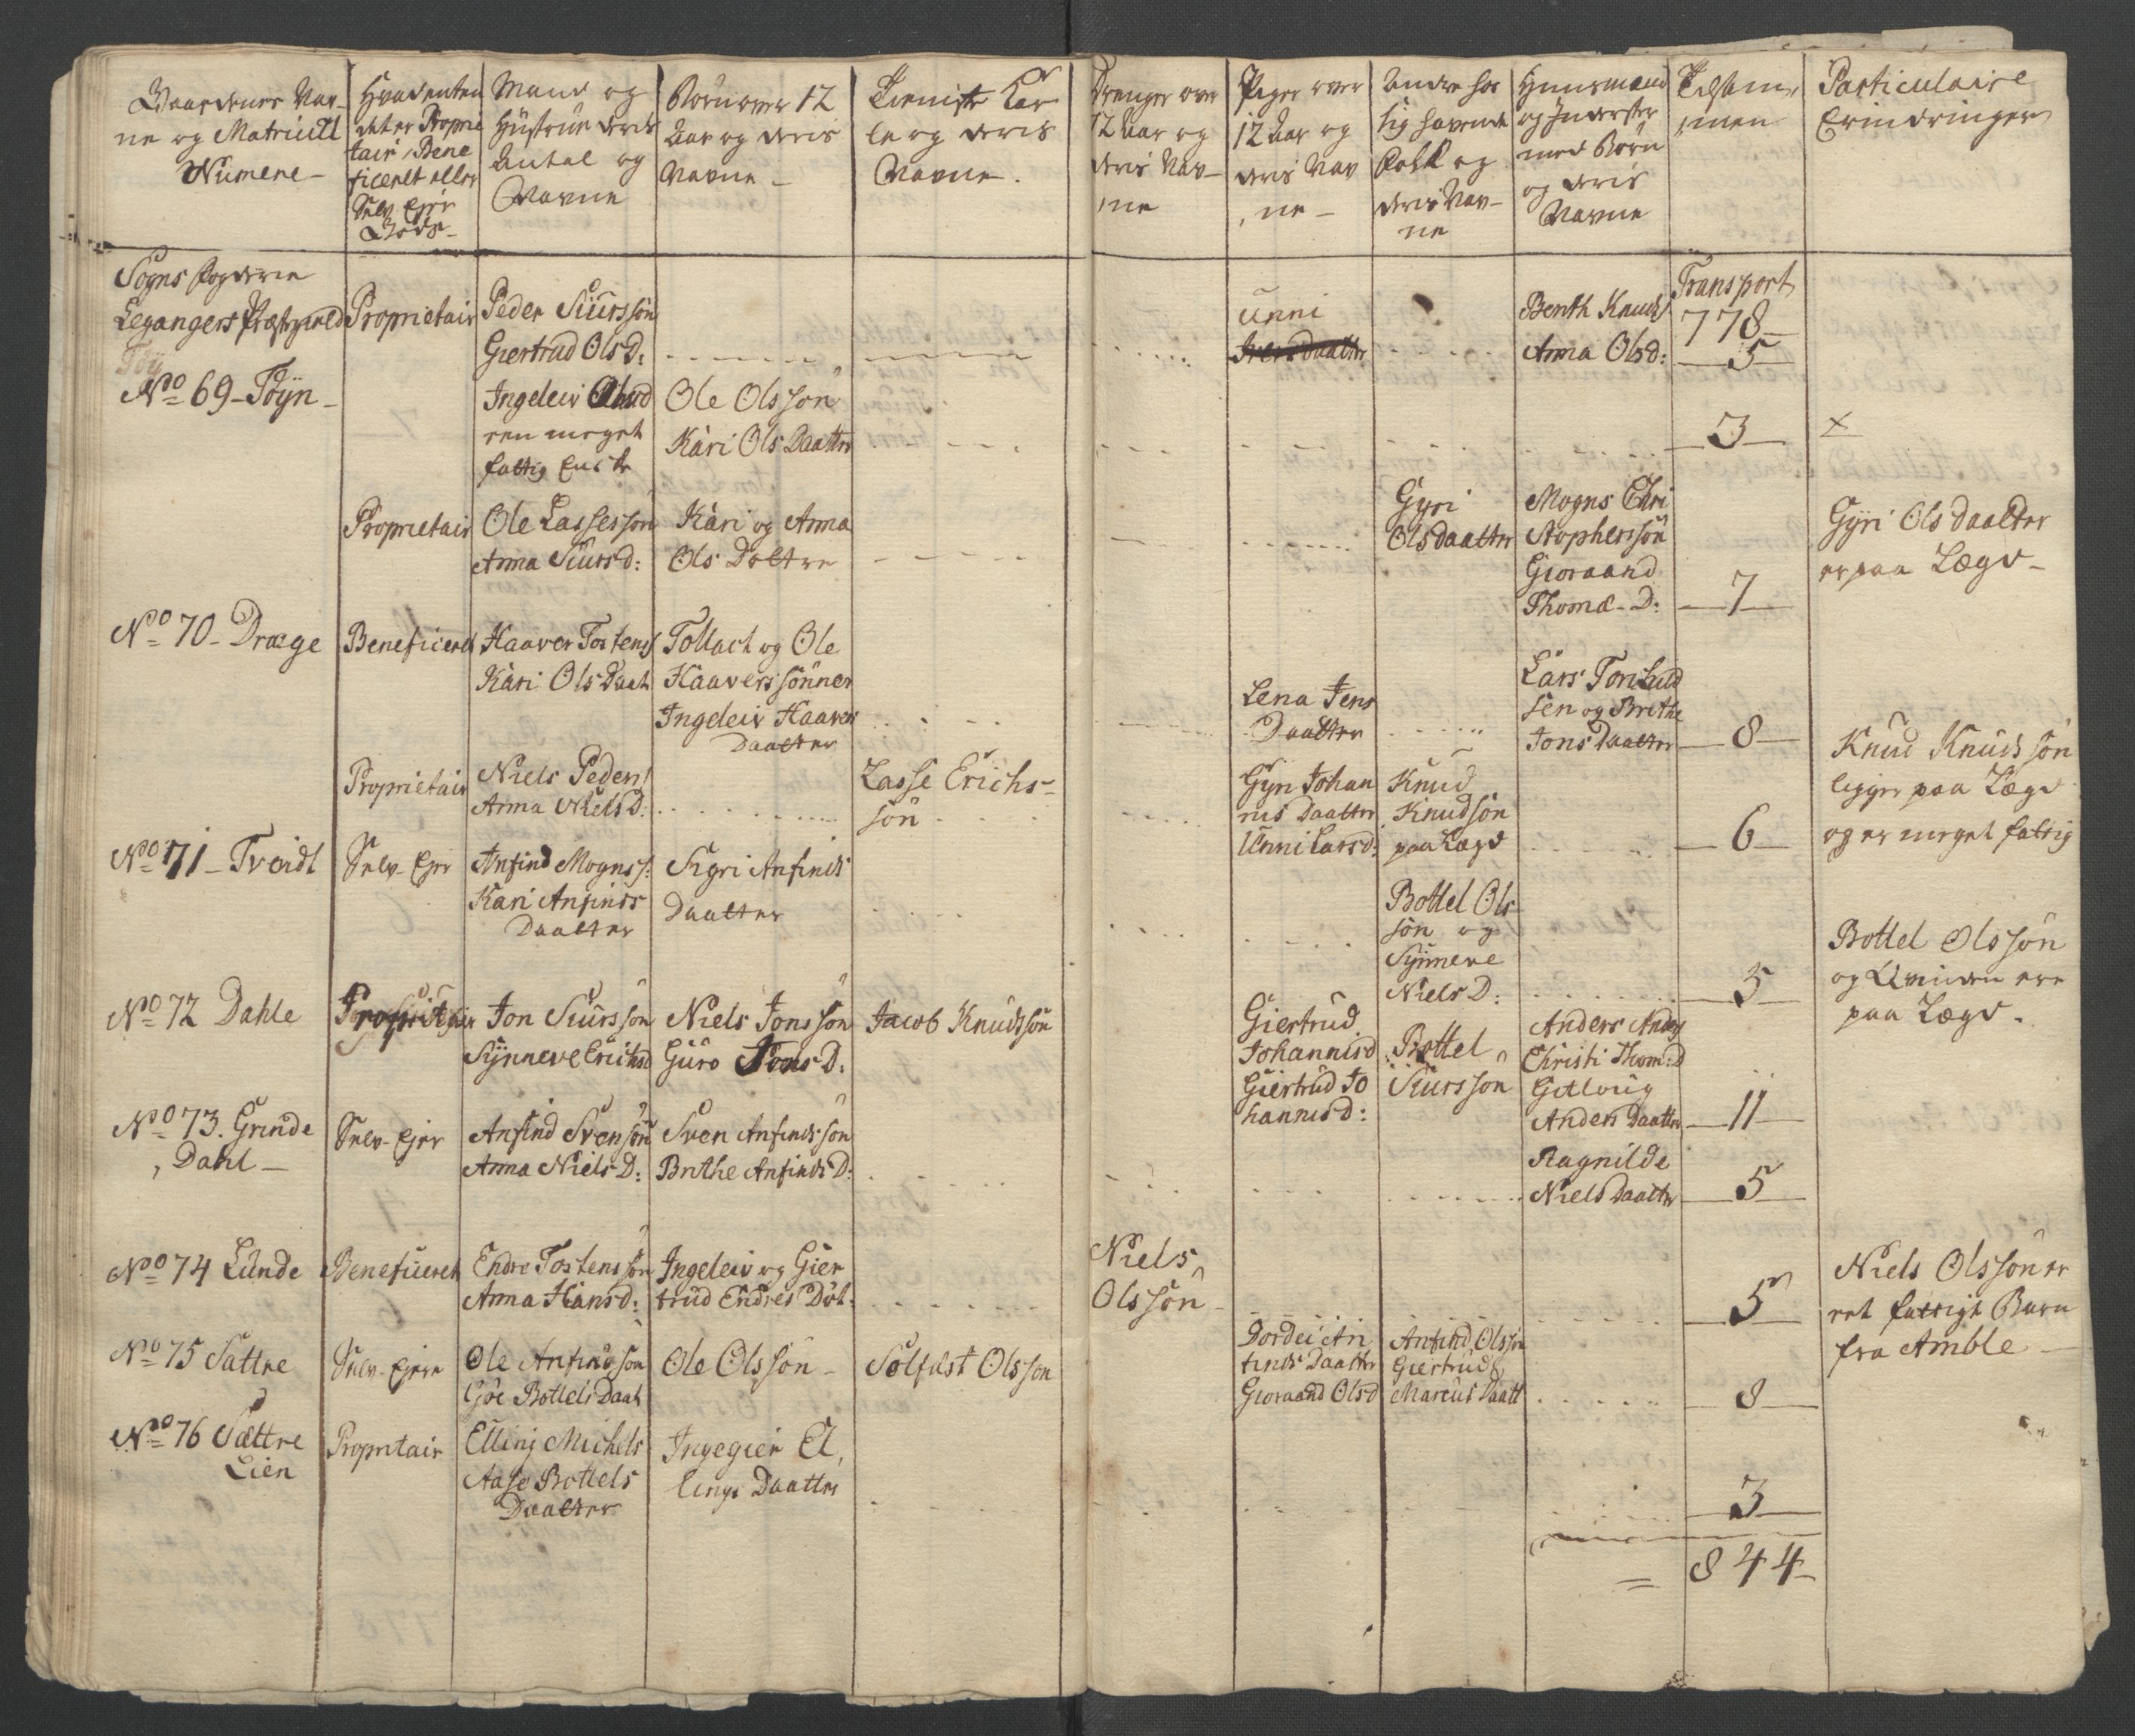 Gaardenes Nav-
ne og Matricul
Numere-
Hvad enten
det er Proprie
tair, Bene
ficeret eller
Selv Ejer
Gods-
Mand og
Hustrue deris
Antal og
Navne
Børn over 12
Aar og deris
Navne-
Tieniste Kar
le og deris
Navne.
Drenger over
12 Aar og
deris Nav-
ne
Piger over
12 Aar og
deris Nav
ne-
Andre hos
sig havende
Folk og
deris Nav-
ne
Huusmænd
og Inderster
med Børn
og deris
Navne
Tilsam,
men
Particulaire
Erindringer
Sogns Fogderie
Legangers Præstegield
Proprietair
Peder Siursson
Giertrud Ols D:
Unni
Ivers Daatter
Benth Knuds
Anna Olsd:
Transport
778-
5
No 69- Tøyn-
Ingeleiv Olsd
een meget
fattig Enke
Ole Olsson
Kari Ols Daatter
3
x
Proprietair
Ole Lassesson
Anna Siursd:
Kari og Anna
Ols Døttre
Gyri
Olsdaatter
Mogns Chri
stophersson
Gioraand
Thomæ-D:
7
Gyri Olsdaatter
er paa Lægd-
No 70- Dræge
Beneficeret
Haaver Tostens
Kari Ols Daat
Tollach og Ole
Haavers sønner
Ingeleiv Haavers
Daatter
Lena Jens
Daatter
Lars Torchild
sen og Brithe
Jons Daatter
8
Proprietair
Niels Peders
Anna Niels D:
Lasse Erichs-
søn
Gyri Johan
nis Daatter
Unni Larsd:
Knud
Knudsøn
paa Lægd
6
Knud Knudssøn
ligger paa Lægd
og er meget fattig
No 71- Tveidt
Selv-Ejer
Anfind Mognss:
Kari Anfinds
Daatter
Sigri Anfinds
Daatter
Bottel Ols
søn og
Synneve
Niels D:
5
Bottel Olssøn
og Qvinden ere
paa Lægd.
No 72 Dahle
Proprietair
Jon Siursson
Synneve Erichsd
Niels Jonssøn
Guro Jons D:
Jacob Knudssøn
Giertrud
Johannisd
Giertrud Jo
hannisd:
Bottel
Siurssøn
Anders Anders
Christi Thom:D
Gitloug
Anders Daatter
11
No 73. Grinde
Dahl-
Selv-Ejer
Anfind Svensøn
Anna Niels D:
Sven Anfindssøn
Brithe Anfinds D:
Ragnilde
Niels Daatter
5
No 74 Lunde
Beneficeret
Endre Tostenssøn
Anna Hansd:
Ingeleiv og Gier
trud Endres Døt:
Niels
Olssøn-
5
Niels Olssøn er
et fattigt Barn
fra Amble-
No 75 Sattre
Selv-Ejere
Ole Anfindssøn
Giøe Bottels Daat
Ole Olssøn-
Solfæst Olsson
Dordei An
finds Daatter
Gioraand Olsd
Anfind Olsson
Giertrud
Marcus Daatt
8
No 76 Sættre
Lien
Proprietair
Elling Michels
Aase Bottels
Daatter
Ingegier El,
lings Daatter
3
= 844-